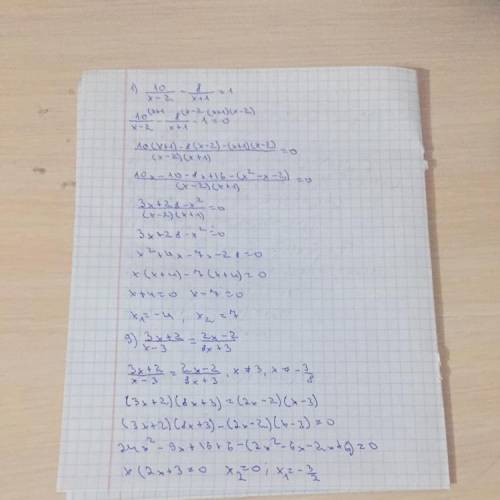 1) 10/(x-2) - 8/(x+1) = 1
10/(x-2) ^(x+1 - 8/(x+1) ^(x-2 - 1 ^(x+1)(x-2) = 0
(10(x+1) - 8(x-2) - (x+1)(x-2))/((x-2)(x+1)) = 0
(10x - 10 - 8x + 16 - (x² - x - 2))/((x-2)(x+1)) = 0
(3x + 28 - x²)/((x-2)(x+1)) = 0
3x + 28 - x² = 0
x² + 4x - 7x - 28 = 0
x(x+4) - 7(x+4) = 0
x+4=0 x-7=0
x₁=-4 ; x₂=7
9) (3x+2)/(x-3) = (2x-2)/(8x+3)
(3x+2)/(x-3) = (2x-2)/(8x+3), x ≠ 3, x ≠ -3/8
(3x+2)(8x+3) = (2x-2)(x-3)
(3x+2)(8x+3) - (2x-2)(x-3) = 0
24x² - 9x + 16 + 6 - (2x² - 6x - 2x + 6) = 0
x(2x+3=0 x₂=0; x₁=-3/2